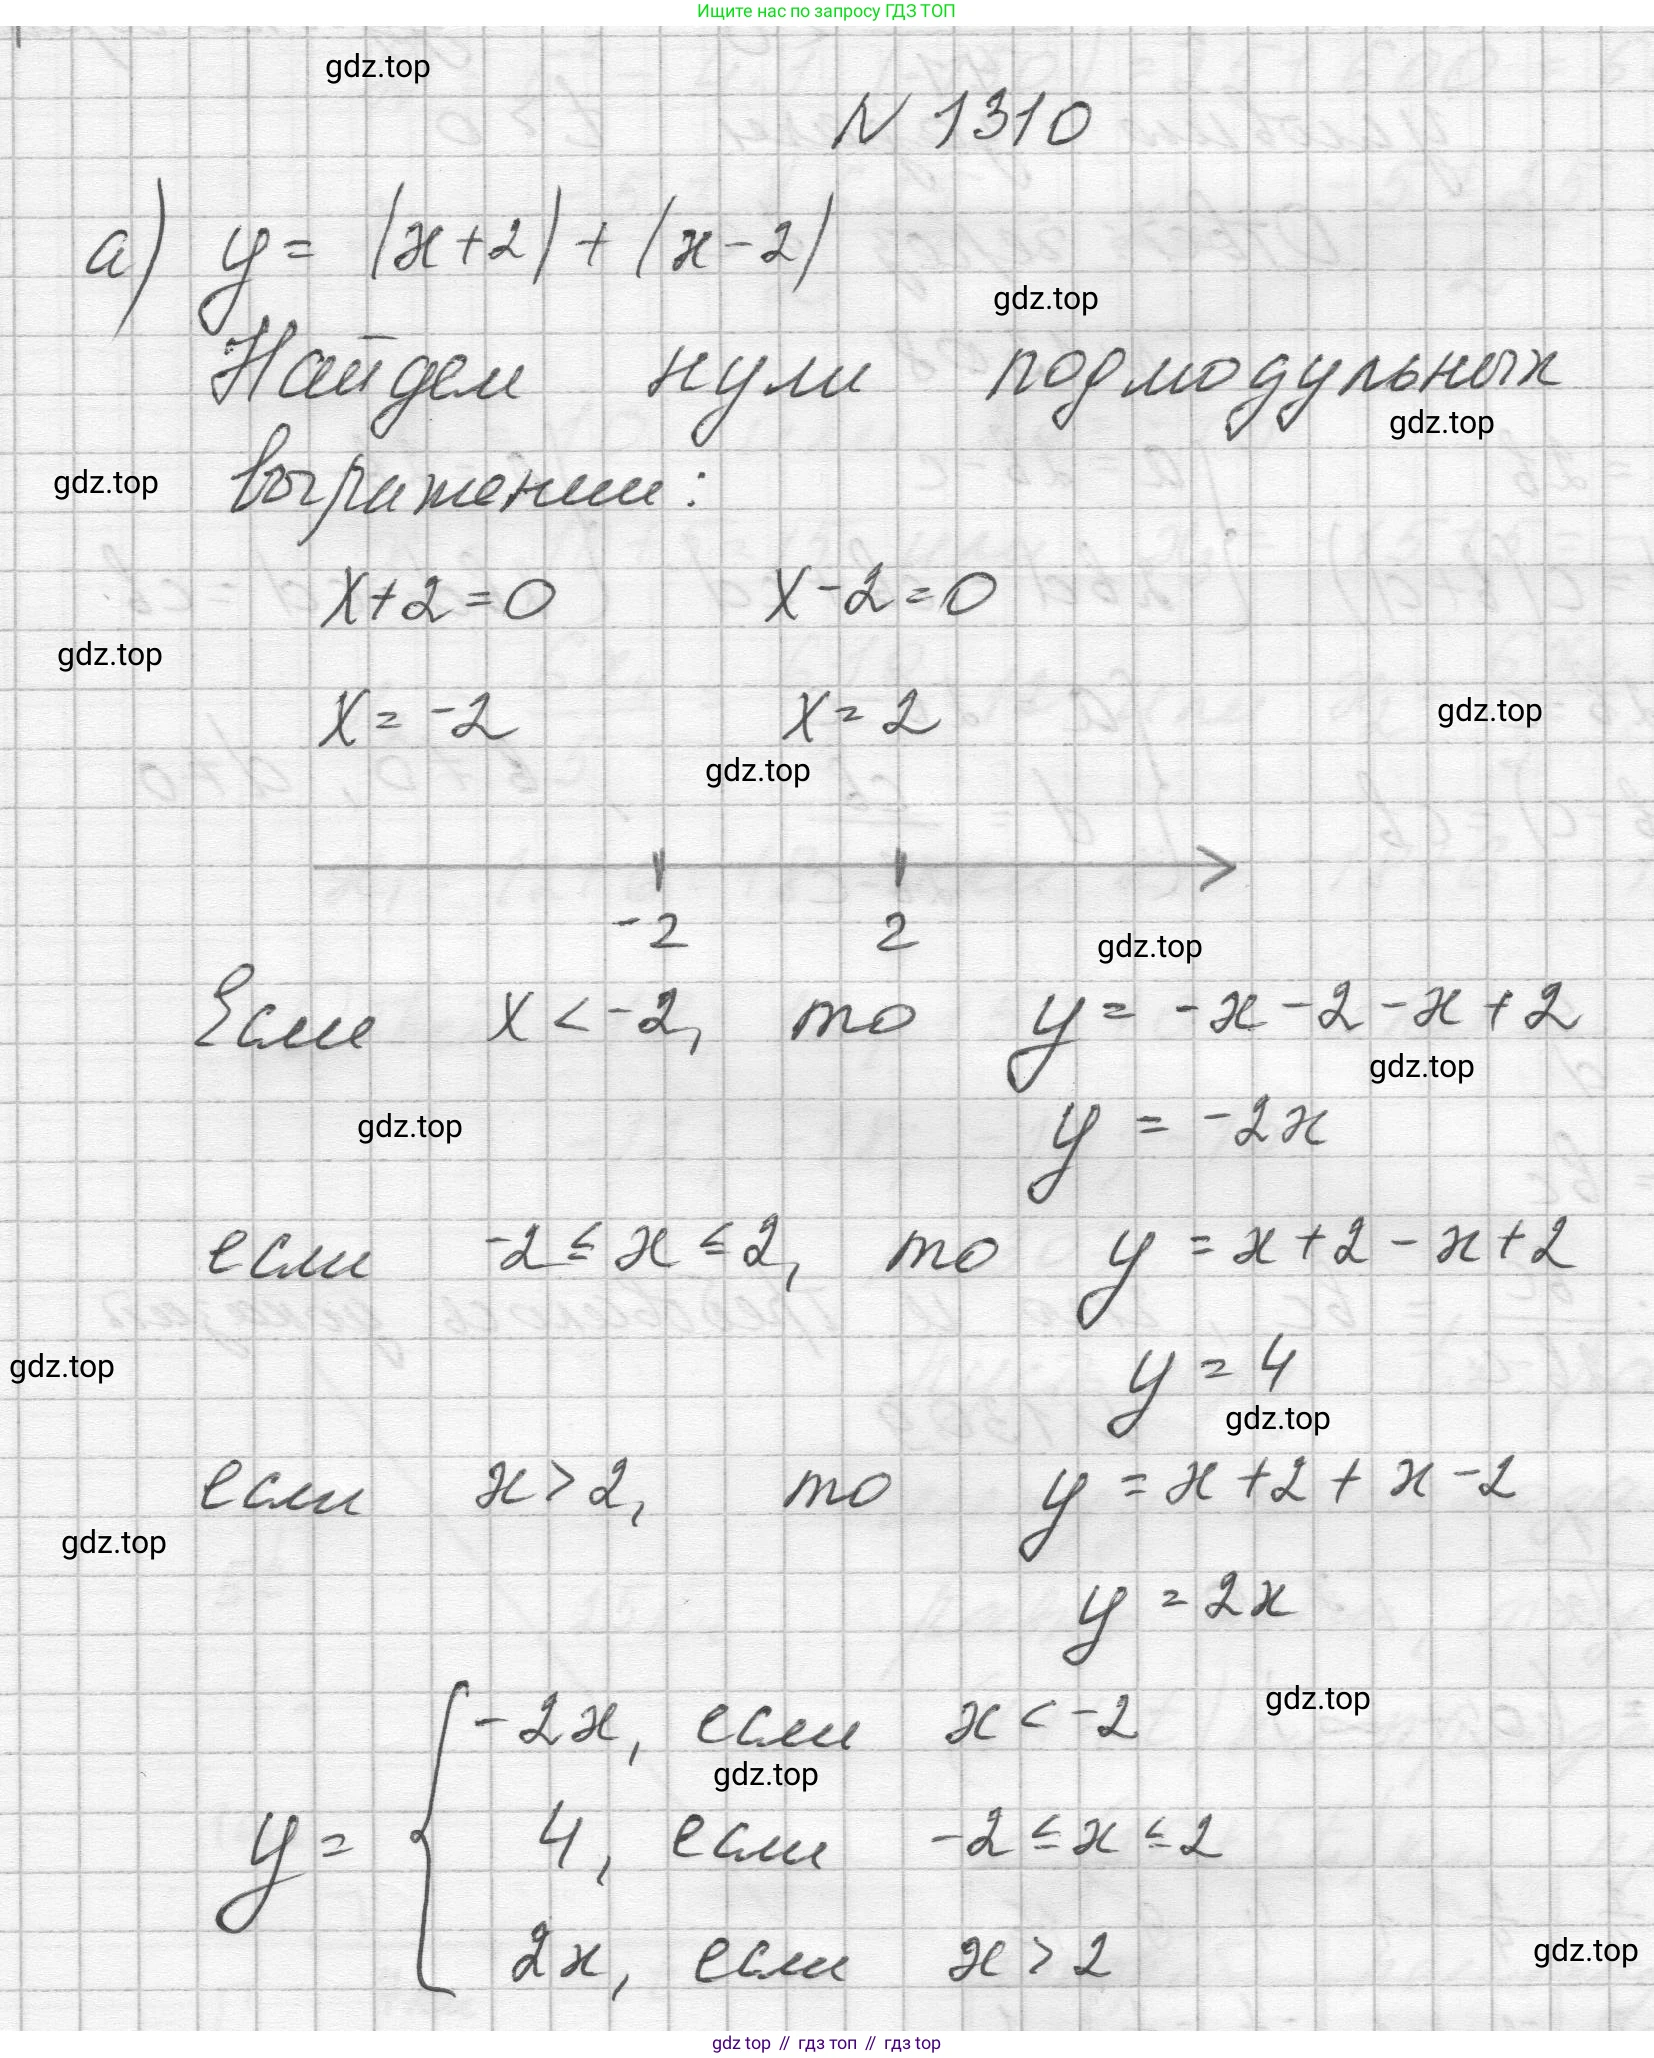 Ищите нас по запросу ГДЗ ТОП
gdz.top
N 1310
а) y = |x+2| + |x-2|
gdz.top
Найдем нули подмодульных
gdz.top
gdz.top
выражений:
x+2=0 x-2=0
gdz.top
x=-2 x=2
gdz.top
gdz.top
-2 2
gdz.top
Если x < -2, то y = -x-2-x+2
gdz.top
gdz.top
y = -2x
если -2 ≤ x ≤ 2, то y = x+2-x+2
gdz.top
y = 4
gdz.top
если x > 2, то y = x+2+x-2
gdz.top
y = 2x
gdz.top
-2x, если x < -2
gdz.top
y = { 4, если -2 ≤ x ≤ 2
2x, если x > 2
gdz.top
gdz top // гдз топ // гдз.top